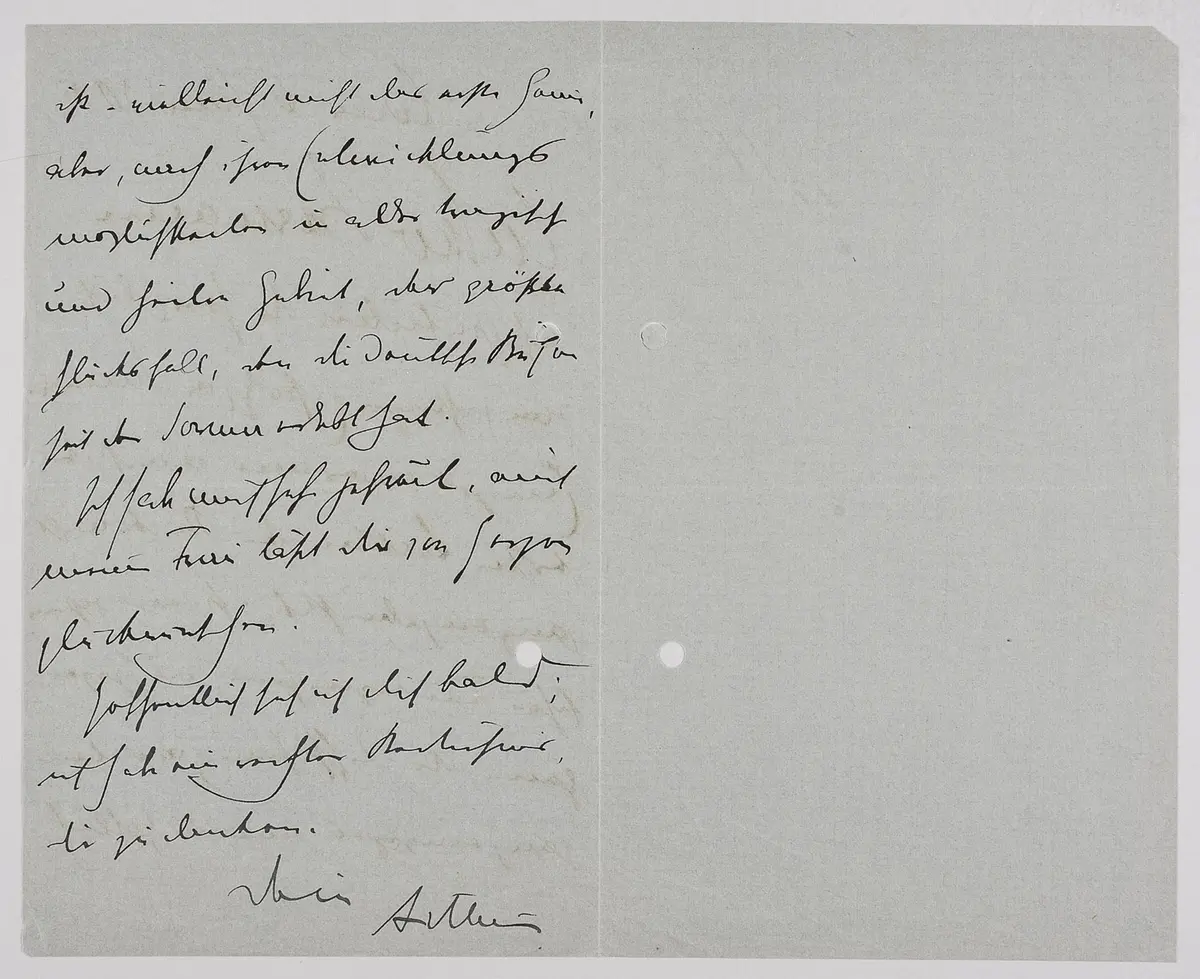 ist – vielleicht nicht der erste Genie,
aber, nach ihren Entwicklungs
möglichkeiten in aller tragisch
und Gebiet, der größte
Glücksfall, den die Deutsche Bühne
seit der erlebt hat.
Ich hab mich sehr gefreut, auch
meine Frau läßt dir von Herzen
glückwünschen.
Hoffentlich seh ich dich bald;
ich hab ein rechtes Bedürfnis,
dir zu danken.
Dein
Arthur